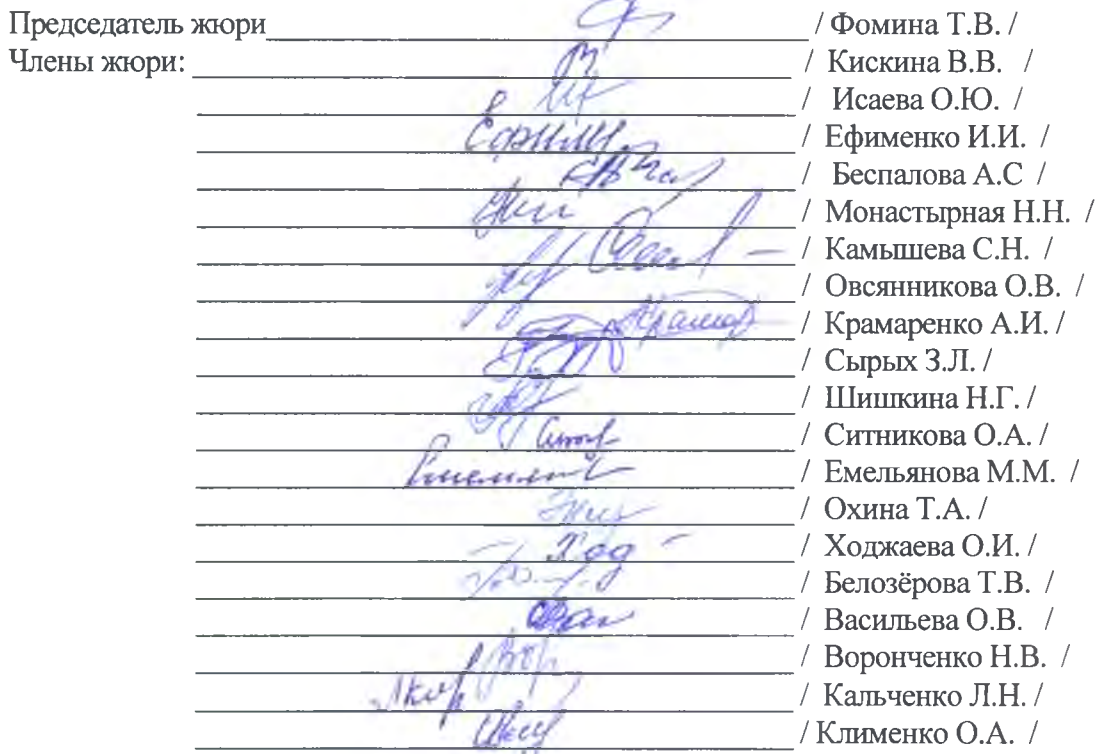 Председатель жюри / Фомина Т.В. /
Члены жюри: / Кискина В.В. /
/ Исаева О.Ю. /
/ Ефименко И.И. /
/ Беспалова А.С /
/ Монастырная Н.Н. /
/ Камышева С.Н. /
/ Овсянникова О.В. /
/ Крамаренко А.И. /
/ Сырых З.Л. /
/ Шишкина Н.Г. /
/ Ситникова О.А. /
/ Емельянова М.М. /
/ Охина Т.А. /
/ Ходжаева О.И. /
/ Белозёрова Т.В. /
/ Васильева О.В. /
/ Воронченко Н.В. /
/ Кальченко Л.Н. /
/ Клименко О.А. /